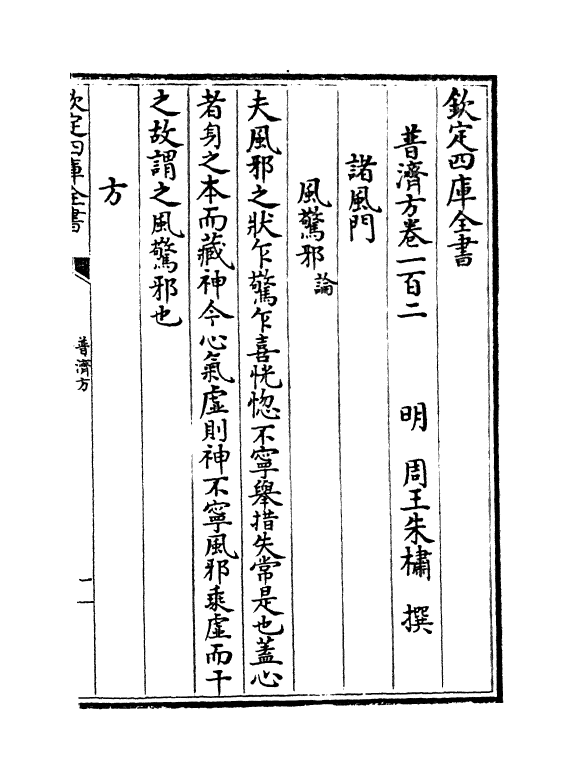 欽定四庫全書
普濟方卷一百二 明 周王朱橚 撰
諸風門
風驚邪論
夫風邪之狀乍驚乍喜恍惚不寧舉措失常是也蓋心
者身之本而藏神今心氣虛則神不寧風邪乘虛而干
之故謂之風驚邪也
方
欽定四庫全書
普濟方
一